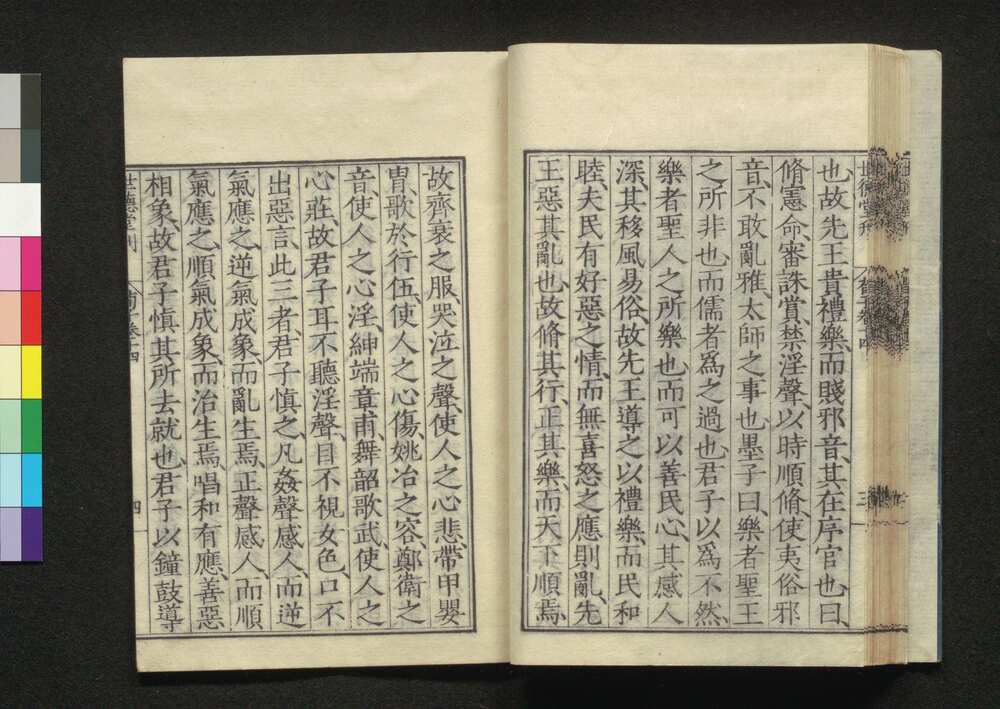 也、故先王貴禮樂、而賤邪音、其在序官也、曰、
脩憲命、審誅賞、禁淫聲、以時順脩、使夷俗邪
音、不敢亂雅、太師之事也、墨子曰、樂者聖王
之所非也、而儒者爲之過也、君子以爲不然、
樂者聖人之所樂也、而可以善民心、其感人
深、其移風易俗、故先王導之以禮樂、而民和
睦、夫民有好惡之情、而無喜怒之應、則亂、先
王惡其亂也、故脩其行、正其樂、而天下順焉、
故齊衰之服、哭泣之聲、使人之心悲、帶甲嬰
冑、歌於行伍、使人之心傷、姚冶之容、鄭衞之
音、使人之心淫、紳端章甫、舞韶歌武、使人之
心莊、故君子耳不聽淫聲、目不視女色、口不
出惡言、此三者、君子慎之、凡姦聲感人、而逆
氣應之、逆氣成象、而亂生焉、正聲感人、而順
氣應之、順氣成象、而治生焉、唱和有應、善惡
相象、故君子慎其所去就也、君子以鐘鼓導
四